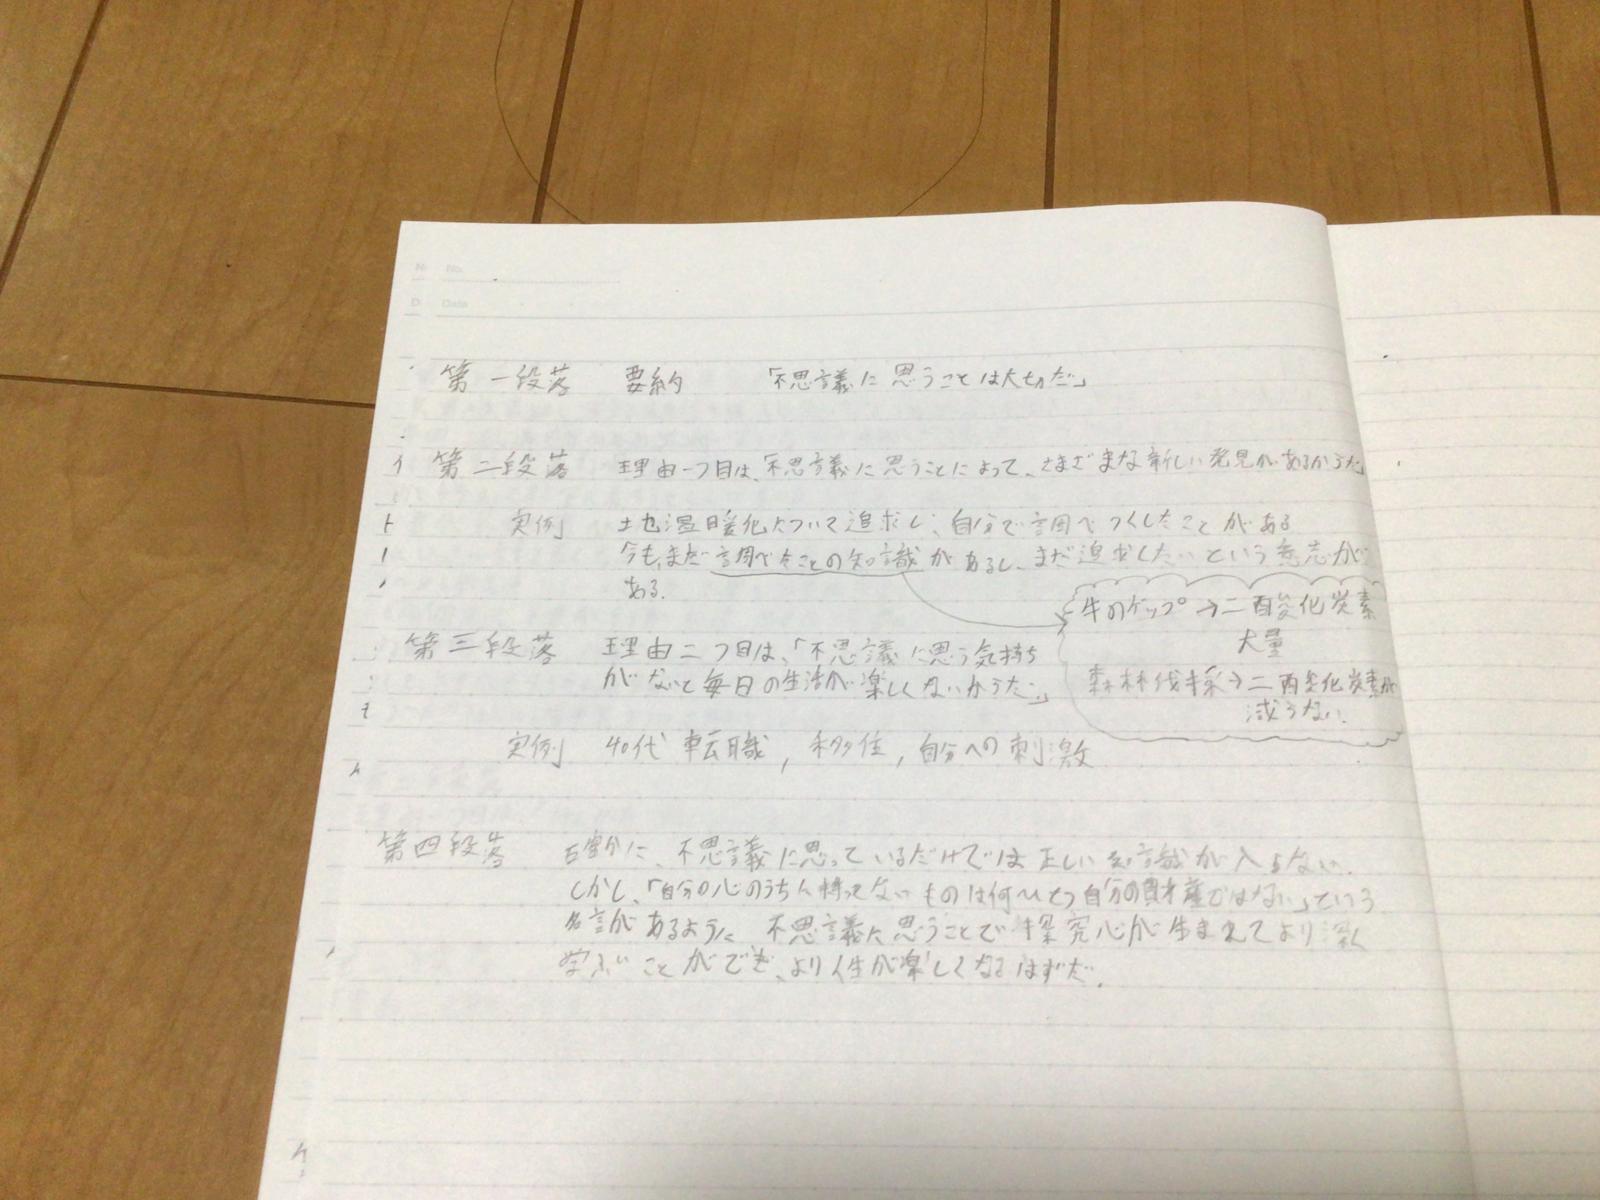 No.
Date
第一段落 要約 「不思議に思うことは大切だ」
第二段落 理由一つ目は、「不思議に思うことによって、さまざまな新しい発見があるからだ」
実例 地球温暖化について追求し、自分で調べつくしたことがある
今も、まだ調べたことの知識があるし、まだ追求したいという意志が
ある.
牛のゲップ→二酸化炭素
大量
森林伐採→二酸化炭素が
減らない.
第三段落 理由二つ目は、「不思議に思う気持ち
がないと毎日の生活が楽しくないからだ。」
実例 40代 転職, 移住, 自分への刺激
第四段落 確かに、不思議に思っているだけでは正しい知識が入らない.
しかし、「自分の心のうちに持ってないものは何ひとつ自分の財産ではない」という
名言があるように 不思議に思うことで探究心が生まれてより深く
学ぶことができ、より人生が楽しくなるはずだ.